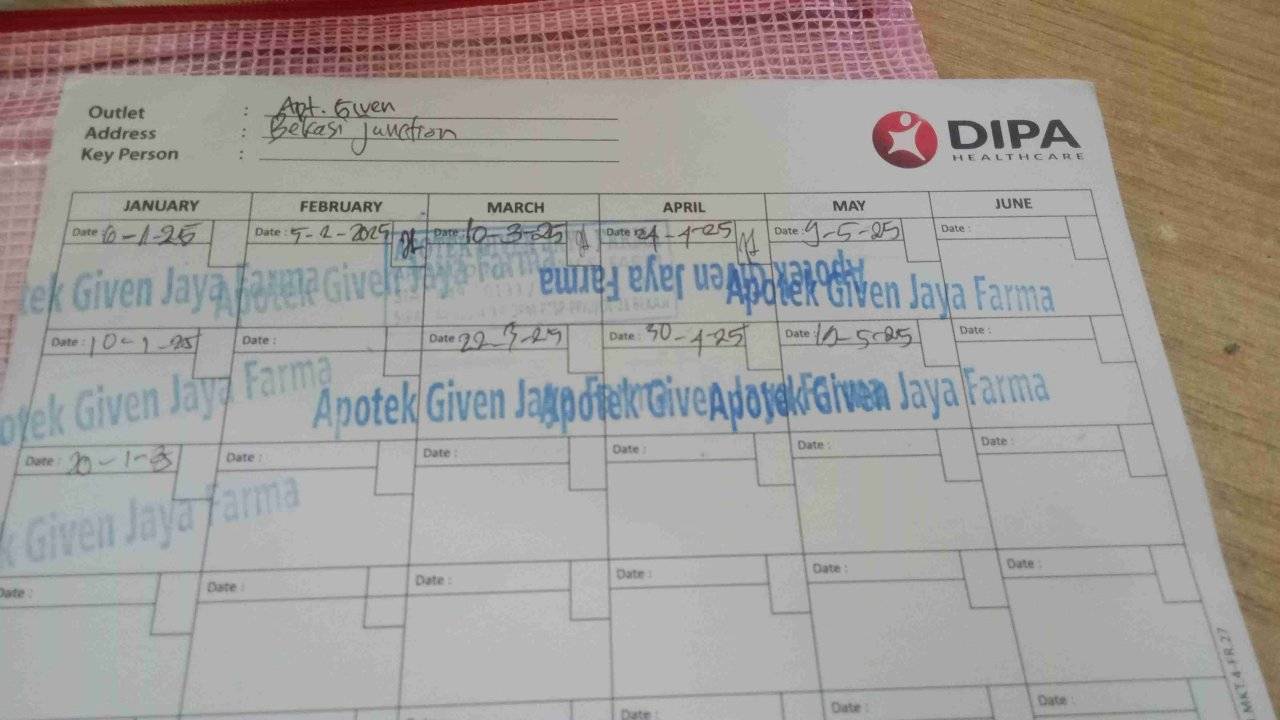 Outlet : Apt. Given
Address : Bekasi Junction
Key Person :
DIPA
HEALTHCARE
JANUARY FEBRUARY MARCH APRIL MAY JUNE
Date : 6-1-25 Date : 5-2-2025 Date : 10-3-25 Date : 24-4-25 Date : 9-5-25 Date :
tek Given Jaya Farma Apotek Given Jaya Farma Apotek Given Jaya Farma Apotek Given Jaya Farma
Date : 10-1-25 Date : Date : 22-3-25 Date : 30-4-25 Date : 12-5-25 Date :
otek Given Jaya Farma Apotek Given Jaya Farma Apotek Given Jaya Farma Apotek Given Jaya Farma
Date : 20-1-25 Date : Date : Date : Date : Date :
k Given Jaya Farma
Date : Date : Date : Date : Date : Date :
Date : Date : Date :
MKT.4-FR.27